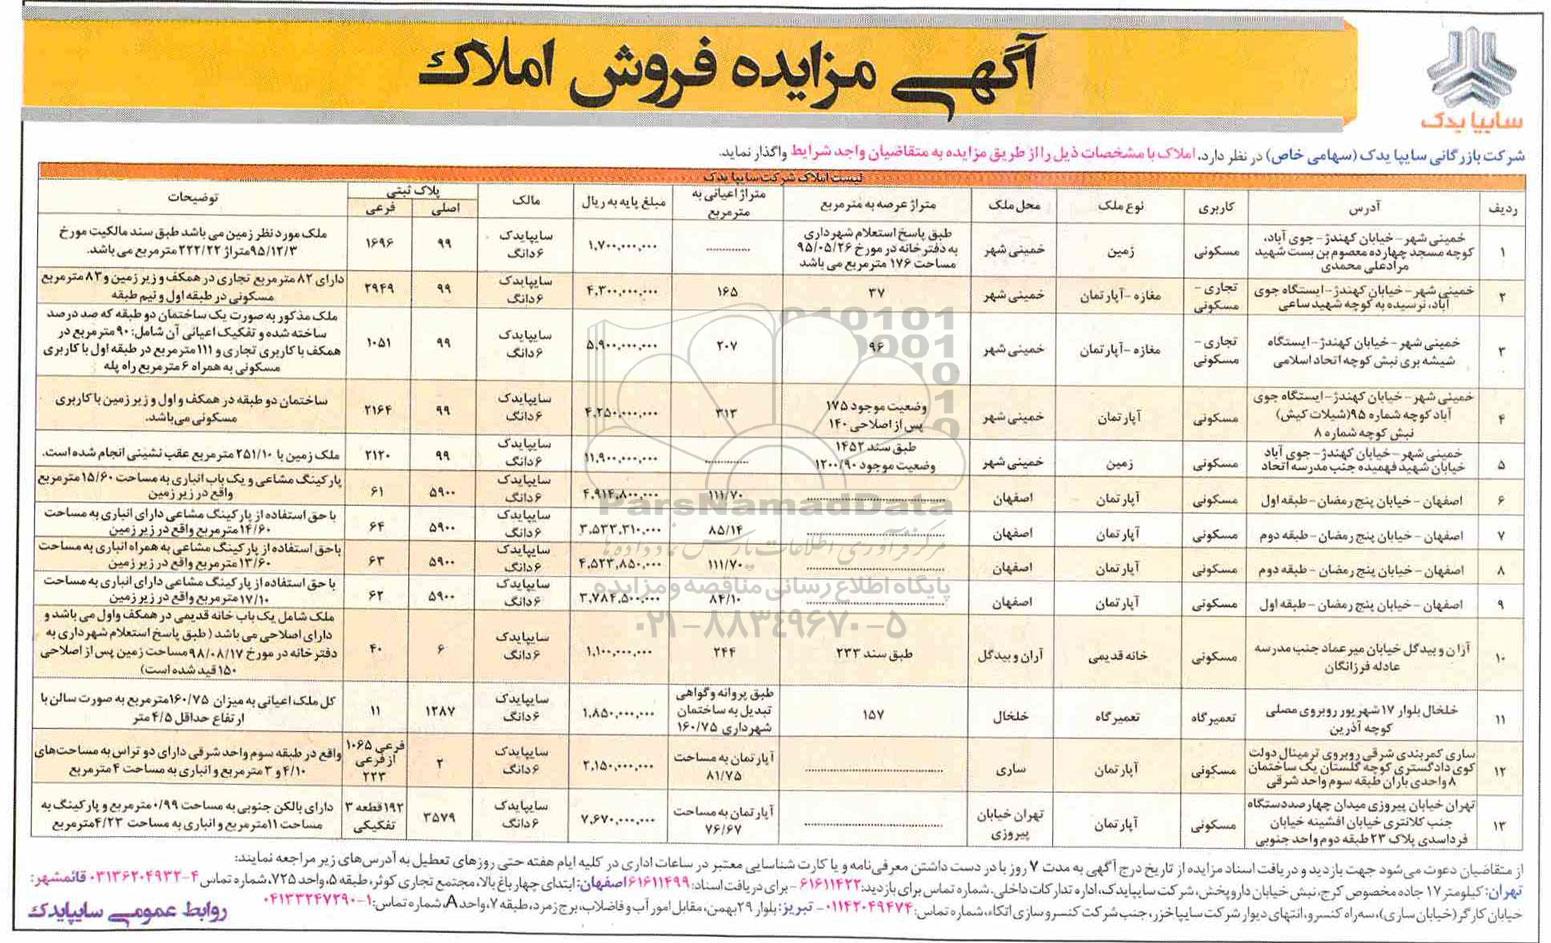 آگهی مزایده فروش املاک
سایپا یدک
شرکت بازرگانی سایپا یدک (سهامی خاص) در نظر دارد، املاک با مشخصات ذیل را از طریق مزایده به متقاضیان واجد شرایط واگذار نماید.
لیست املاک شرکت سایپا یدک
ردیف | آدرس | کاربری | نوع ملک | محل ملک | متراژ عرصه به مترمربع | متراژ اعیانی به مترمربع | مبلغ پایه به ریال | مالک | پلاک ثبتی اصلی | فرعی | توضیحات
۱ | خمینی شهر - خیابان کهندژ - جوی آباد، کوچه مسجد چهارده معصوم بن بست شهید مرادعلی محمدی | مسکونی | زمین | خمینی شهر | طبق پاسخ استعلام شهرداری به دفترخانه در مورخ ۹۵/۰۵/۲۶ مساحت ۱۷۶ مترمربع می باشد | ............ | ۱,۷۰۰,۰۰۰,۰۰۰ | سایپایدک ۶دانگ | ۹۹ | ۱۶۹۶ | ملک مورد نظر زمین می باشد طبق سند مالکیت مورخ ۹۵/۱۲/۳ متراژ ۲۲۲/۲۲ مترمربع می باشد.
۲ | خمینی شهر - خیابان کهندژ - ایستگاه جوی آباد، نرسیده به کوچه شهید ساعی | تجاری - مسکونی | مغازه - آپارتمان | خمینی شهر | ۳۷ | ۱۶۵ | ۴,۳۰۰,۰۰۰,۰۰۰ | سایپایدک ۶دانگ | ۹۹ | ۲۹۴۹ | دارای ۸۲ مترمربع تجاری در همکف و زیر زمین و ۸۳ مترمربع مسکونی در طبقه اول و نیم طبقه
۳ | خمینی شهر - خیابان کهندژ - ایستگاه شیشه بری نبش کوچه اتحاد اسلامی | تجاری - مسکونی | مغازه - آپارتمان | خمینی شهر | ۹۶ | ۲۰۷ | ۵,۹۰۰,۰۰۰,۰۰۰ | سایپایدک ۶دانگ | ۹۹ | ۱۰۵۱ | ملک مذکور به صورت یک ساختمان دو طبقه که صد درصد ساخته شده و تفکیک اعیانی آن شامل: ۹۰ مترمربع در همکف با کاربری تجاری و ۱۱۱ مترمربع در طبقه اول با کاربری مسکونی به همراه ۶ مترمربع راه پله
۴ | خمینی شهر - خیابان کهندژ - ایستگاه جوی آباد کوچه شماره ۹۵ (شیلات کیش) نبش کوچه شماره ۸ | مسکونی | آپارتمان | خمینی شهر | وضعیت موجود ۱۷۵ پس از اصلاحی ۱۴۰ | ۳۱۳ | ۴,۲۵۰,۰۰۰,۰۰۰ | سایپایدک ۶دانگ | ۹۹ | ۲۱۶۴ | ساختمان دو طبقه در همکف و اول و زیر زمین با کاربری مسکونی می باشد.
۵ | خمینی شهر - خیابان کهندژ - جوی آباد خیابان شهید فهمیده جنب مدرسه اتحاد | مسکونی | زمین | خمینی شهر | طبق سند ۱۴۵۲ وضعیت موجود ۱۲۰۰/۹۰ | ............ | ۱۱,۹۰۰,۰۰۰,۰۰۰ | سایپایدک ۶دانگ | ۹۹ | ۲۱۲۰ | ملک زمین با ۲۵۱/۱۰ مترمربع عقب نشینی انجام شده است.
۶ | اصفهان - خیابان پنج رمضان - طبقه اول | مسکونی | آپارتمان | اصفهان | ............ | ۱۱۱/۷۰ | ۴,۹۱۴,۸۰۰,۰۰۰ | سایپایدک ۶دانگ | ۵۹۰۰ | ۶۱ | پارکینگ مشاعی و یک باب انباری به مساحت ۱۵/۶۰ مترمربع واقع در زیر زمین
۷ | اصفهان - خیابان پنج رمضان - طبقه دوم | مسکونی | آپارتمان | اصفهان | ............ | ۸۵/۱۴ | ۳,۵۳۳,۳۱۰,۰۰۰ | سایپایدک ۶دانگ | ۵۹۰۰ | ۶۴ | با حق استفاده از پارکینگ مشاعی دارای انباری به مساحت ۱۴/۶۰ مترمربع واقع در زیر زمین
۸ | اصفهان - خیابان پنج رمضان - طبقه دوم | مسکونی | آپارتمان | اصفهان | ............ | ۱۱۱/۷۰ | ۴,۵۲۳,۸۵۰,۰۰۰ | سایپایدک ۶دانگ | ۵۹۰۰ | ۶۳ | باحق استفاده از پارکینگ مشاعی به همراه انباری به مساحت ۱۳/۶۰ مترمربع واقع در زیر زمین
۹ | اصفهان - خیابان پنج رمضان - طبقه اول | مسکونی | آپارتمان | اصفهان | ............ | ۸۴/۱۰ | ۳,۷۸۴,۵۰۰,۰۰۰ | سایپایدک ۶دانگ | ۵۹۰۰ | ۶۲ | با حق استفاده از پارکینگ مشاعی دارای انباری به مساحت ۱۷/۱۰ مترمربع واقع در زیر زمین
۱۰ | آران و بیدگل خیابان میر عماد جنب مدرسه عادله فرزانگان | مسکونی | خانه قدیمی | آران و بیدگل | طبق سند ۲۳۳ | ۲۴۴ | ۱,۱۰۰,۰۰۰,۰۰۰ | سایپایدک ۶دانگ | ۶ | ۴۰ | ملک شامل یک باب خانه قدیمی در همکف و اول می باشد و دارای اصلاحی می باشد (طبق پاسخ استعلام شهرداری به دفترخانه در مورخ ۹۸/۰۸/۱۷ مساحت زمین پس از اصلاحی ۱۵۰ قید شده است)
۱۱ | خلخال بلوار ۱۷ شهریور روبروی مصلی کوچه آذرین | تعمیرگاه | تعمیرگاه | خلخال | ۱۵۷ | طبق پروانه و گواهی تبدیل به ساختمان شهرداری ۱۶۰/۷۵ | ۱,۸۵۰,۰۰۰,۰۰۰ | سایپایدک ۶دانگ | ۱۲۸۷ | ۱۱ | کل ملک اعیانی به میزان ۱۶۰/۷۵ مترمربع به صورت سالن با ارتفاع حداقل ۴/۵ متر
۱۲ | ساری کمربندی شرقی روبروی ترمینال دولت کوی دادگستری کوچه گلستان یک ساختمان ۸ واحدی باران طبقه سوم واحد شرقی | مسکونی | آپارتمان | ساری | ............ | آپارتمان به مساحت ۸۱/۷۵ | ۲,۱۵۰,۰۰۰,۰۰۰ | سایپایدک ۶دانگ | ۲ | فرعی ۱۰۶۵ از فرعی ۲۲۳ | واقع در طبقه سوم واحد شرقی دارای دو تراس به مساحت‌های ۴/۱۰ و ۳ مترمربع و انباری به مساحت ۴ مترمربع
۱۳ | تهران خیابان پیروزی میدان چهارصددستگاه جنب کلانتری خیابان افشینه خیابان فرداسدی پلاک ۲۳ طبقه دوم واحد جنوبی | مسکونی | آپارتمان | تهران خیابان پیروزی | ............ | آپارتمان به مساحت ۷۶/۶۷ | ۷,۶۷۰,۰۰۰,۰۰۰ | سایپایدک ۶دانگ | ۳۵۷۹ | ۱۹۲ قطعه ۳ تفکیکی | دارای بالکن جنوبی به مساحت ۰/۹۹ مترمربع و پارکینگ به مساحت ۱۱ مترمربع و انباری به مساحت ۴/۲۳ مترمربع
از متقاضیان دعوت می‌شود جهت بازدید و دریافت اسناد مزایده از تاریخ درج آگهی به مدت ۷ روز با در دست داشتن معرفی‌نامه و یا کارت شناسایی معتبر در ساعات اداری در کلیه ایام هفته حتی روزهای تعطیل به آدرس‌های زیر مراجعه نمایند:
تهران: کیلومتر ۱۷ جاده مخصوص کرج، نبش خیابان داروپخش، شرکت سایپایدک، اداره تدارکات داخلی. شماره تماس برای بازدید: ۶۱۶۱۱۴۲۲ - برای دریافت اسناد: ۶۱۶۱۱۴۹۹ اصفهان: ابتدای چهارباغ بالا، مجتمع تجاری کوثر، طبقه ۵، واحد ۷۲۵، شماره تماس ۴-۰۳۱۳۶۲۰۴۹۳۲ قائمشهر:
خیابان کارگر (خیابان ساری)، سه راه کنسرو، انتهای دیوار شرکت سایپاخزر، جنب شرکت کنسروسازی اتکاء، شماره تماس: ۰۱۱۴۲۰۴۹۴۷۴ - تبریز: بلوار ۲۹ بهمن، مقابل امور آب و فاضلاب، برج زمرد، طبقه ۷، واحد A، شماره تماس: ۱-۰۴۱۳۳۲۴۷۲۹۰
روابط عمومی سایپایدک
ParsNamadData
مرکز فرآوری اطلاعات پارس نماد داده ها
پایگاه اطلاع رسانی مناقصه و مزایده
۰۲۱-۸۸۳۴۹۶۷۰-۵